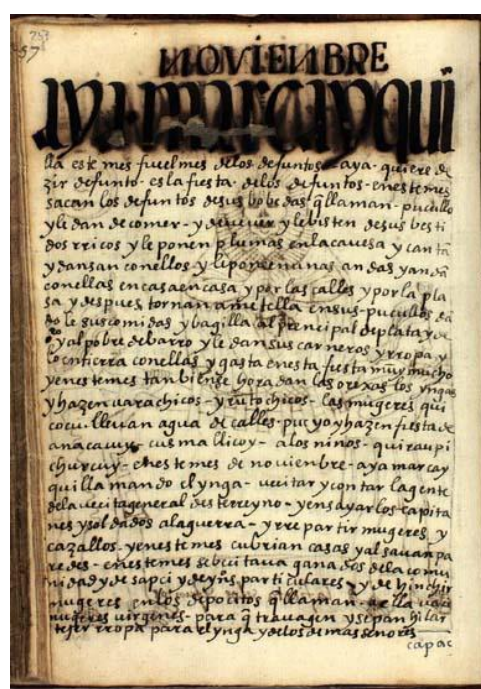 257
NOVIEMBRE
AYA MARCAYQUI
lla este mes fue el mes de los defuntos - aya - quiere de
zir defunto - es la fiesta de los defuntos - en este mes
sacan los defuntos de sus bobedas q̃ llaman - pucullo
y le dan de comer - y de ueuer y le bisten de sus besti
dos rricos y le ponen plumas en la cauesa y cantã
y dansan con ellos - y le ponen en unas andas y andã
con ellas en casa en casa y por las calles y por la pla
sa y despues tornan a metella en sus - pucullos dã
dole sus comidas y bagilla al prencipal de plata y de
oro y al pobre de barro y le dan sus carneros y rropa y
lo entierra con ellas y gasta en esta fiesta muy mucho
y en este mes tanbien se horadan las orexas los yngas
y hazen uarachicos - y rutochicos - las mugeres qui
cocu lleuan agua de calles - pucyo y hazen fiesta de
anacauuy - cusmallicoy - a los niños - quiraupi
churcuy - en este mes de nouienbre - aya marcay
quilla mando el ynga - uecitar y contar la gente
de la uecita general deste rreyno - y ensayar los capita
nes y soldados a la guerra - y rrepartir mugeres y
cazallos - y en este mes cubrian casas y alsauan pa
redes - en este mes se becitaua ganados de la comu
nidad y de sapci y de yñs particulares - y de hinchir
mugeres en los depocitos q̃ llaman - aclla uaci
mugeres uirgenes - para q̃ trauagen y sepan hilar
tejer rropa para el ynga y de los demas señores
capac